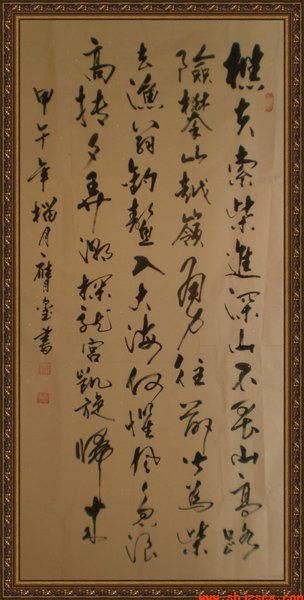 樵夫索柴進深山不畏山高路
險攀山越嶺奮力往前皆為柴
去漁翁釣鰲入大海何懼風急浪
高持夕弄潮探龍宮凱旋歸來
甲午年榴月 書
www.shizscx.com